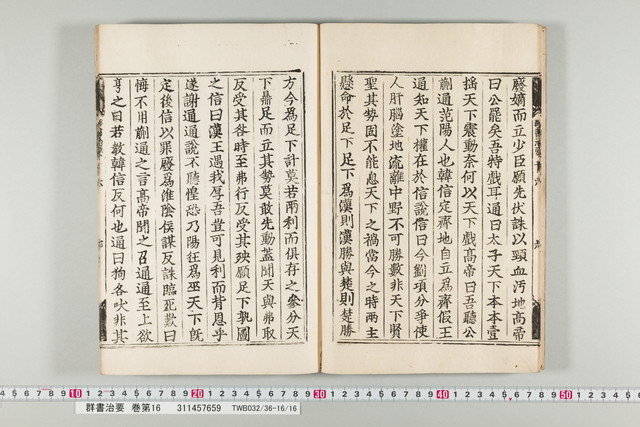 廢嫡而立少臣願先伏誅以頸血汚地高帝
曰公罷矣吾特戲耳通曰太子天下本本壹
揺天下震動奈何以天下戲高帝曰吾聽公
蒯通范陽人也韓信定齊地自立爲齊假王
通知天下權在於信說信曰今劉項分爭使
人肝腦塗地流離中野不可勝數非天下賢
聖其勢固不能息天下之禍當今之時兩主
懸命於足下足下爲漢則漢勝與楚則楚勝
方今爲足下計莫若兩利而俱存之參分天
下鼎足而立其勢莫敢先動蓋聞天與弗取
反受其咎時至弗行反受其殃願足下孰圖
之信曰漢王遇我厚吾豈可見利而背恩乎
遂謝通通說不聽惶恐乃陽狂爲巫天下旣
定後信以罪廢爲淮陰侯謀反誅臨死歎曰
悔不用蒯通之言高帝聞之召通通至上欲
亨之曰若教韓信反何也通曰狗各吠非其
10 20 30 40 50
群書治要 巻第16 311457659 TWB032/36-16/16